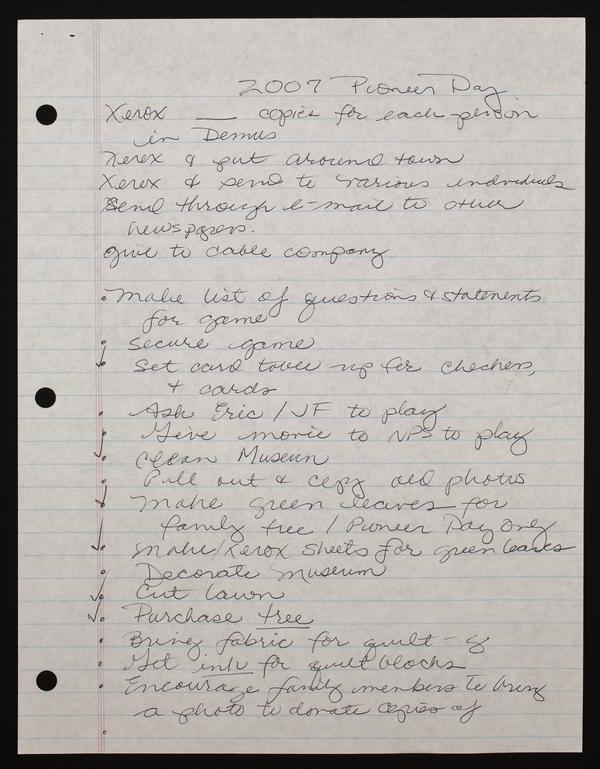 2007 Pioneer Day
Xerox ___ copies for each person
in Demus
Xerox & put around town
Xerox & send to various individuals
Send through e-mail to other
newspapers.
give to cable company
• Make list of questions & statements
for game
• Secure game
• Set card table up for checkers,
+ cards
• Ask Eric / JF to play
• Give movie to NPS to play
• Clean Museum
• Pull out & copy old photos
• Make green leaves for
family tree / Pioneer Day only
• Make/Xerox sheets for green leaves
• Decorate Museum
• Cut lawn
• Purchase tree
• Bring fabric for quilt -
• Get ink for quilt blocks
• Encourage family members to bring
a photo to donate copies of
•